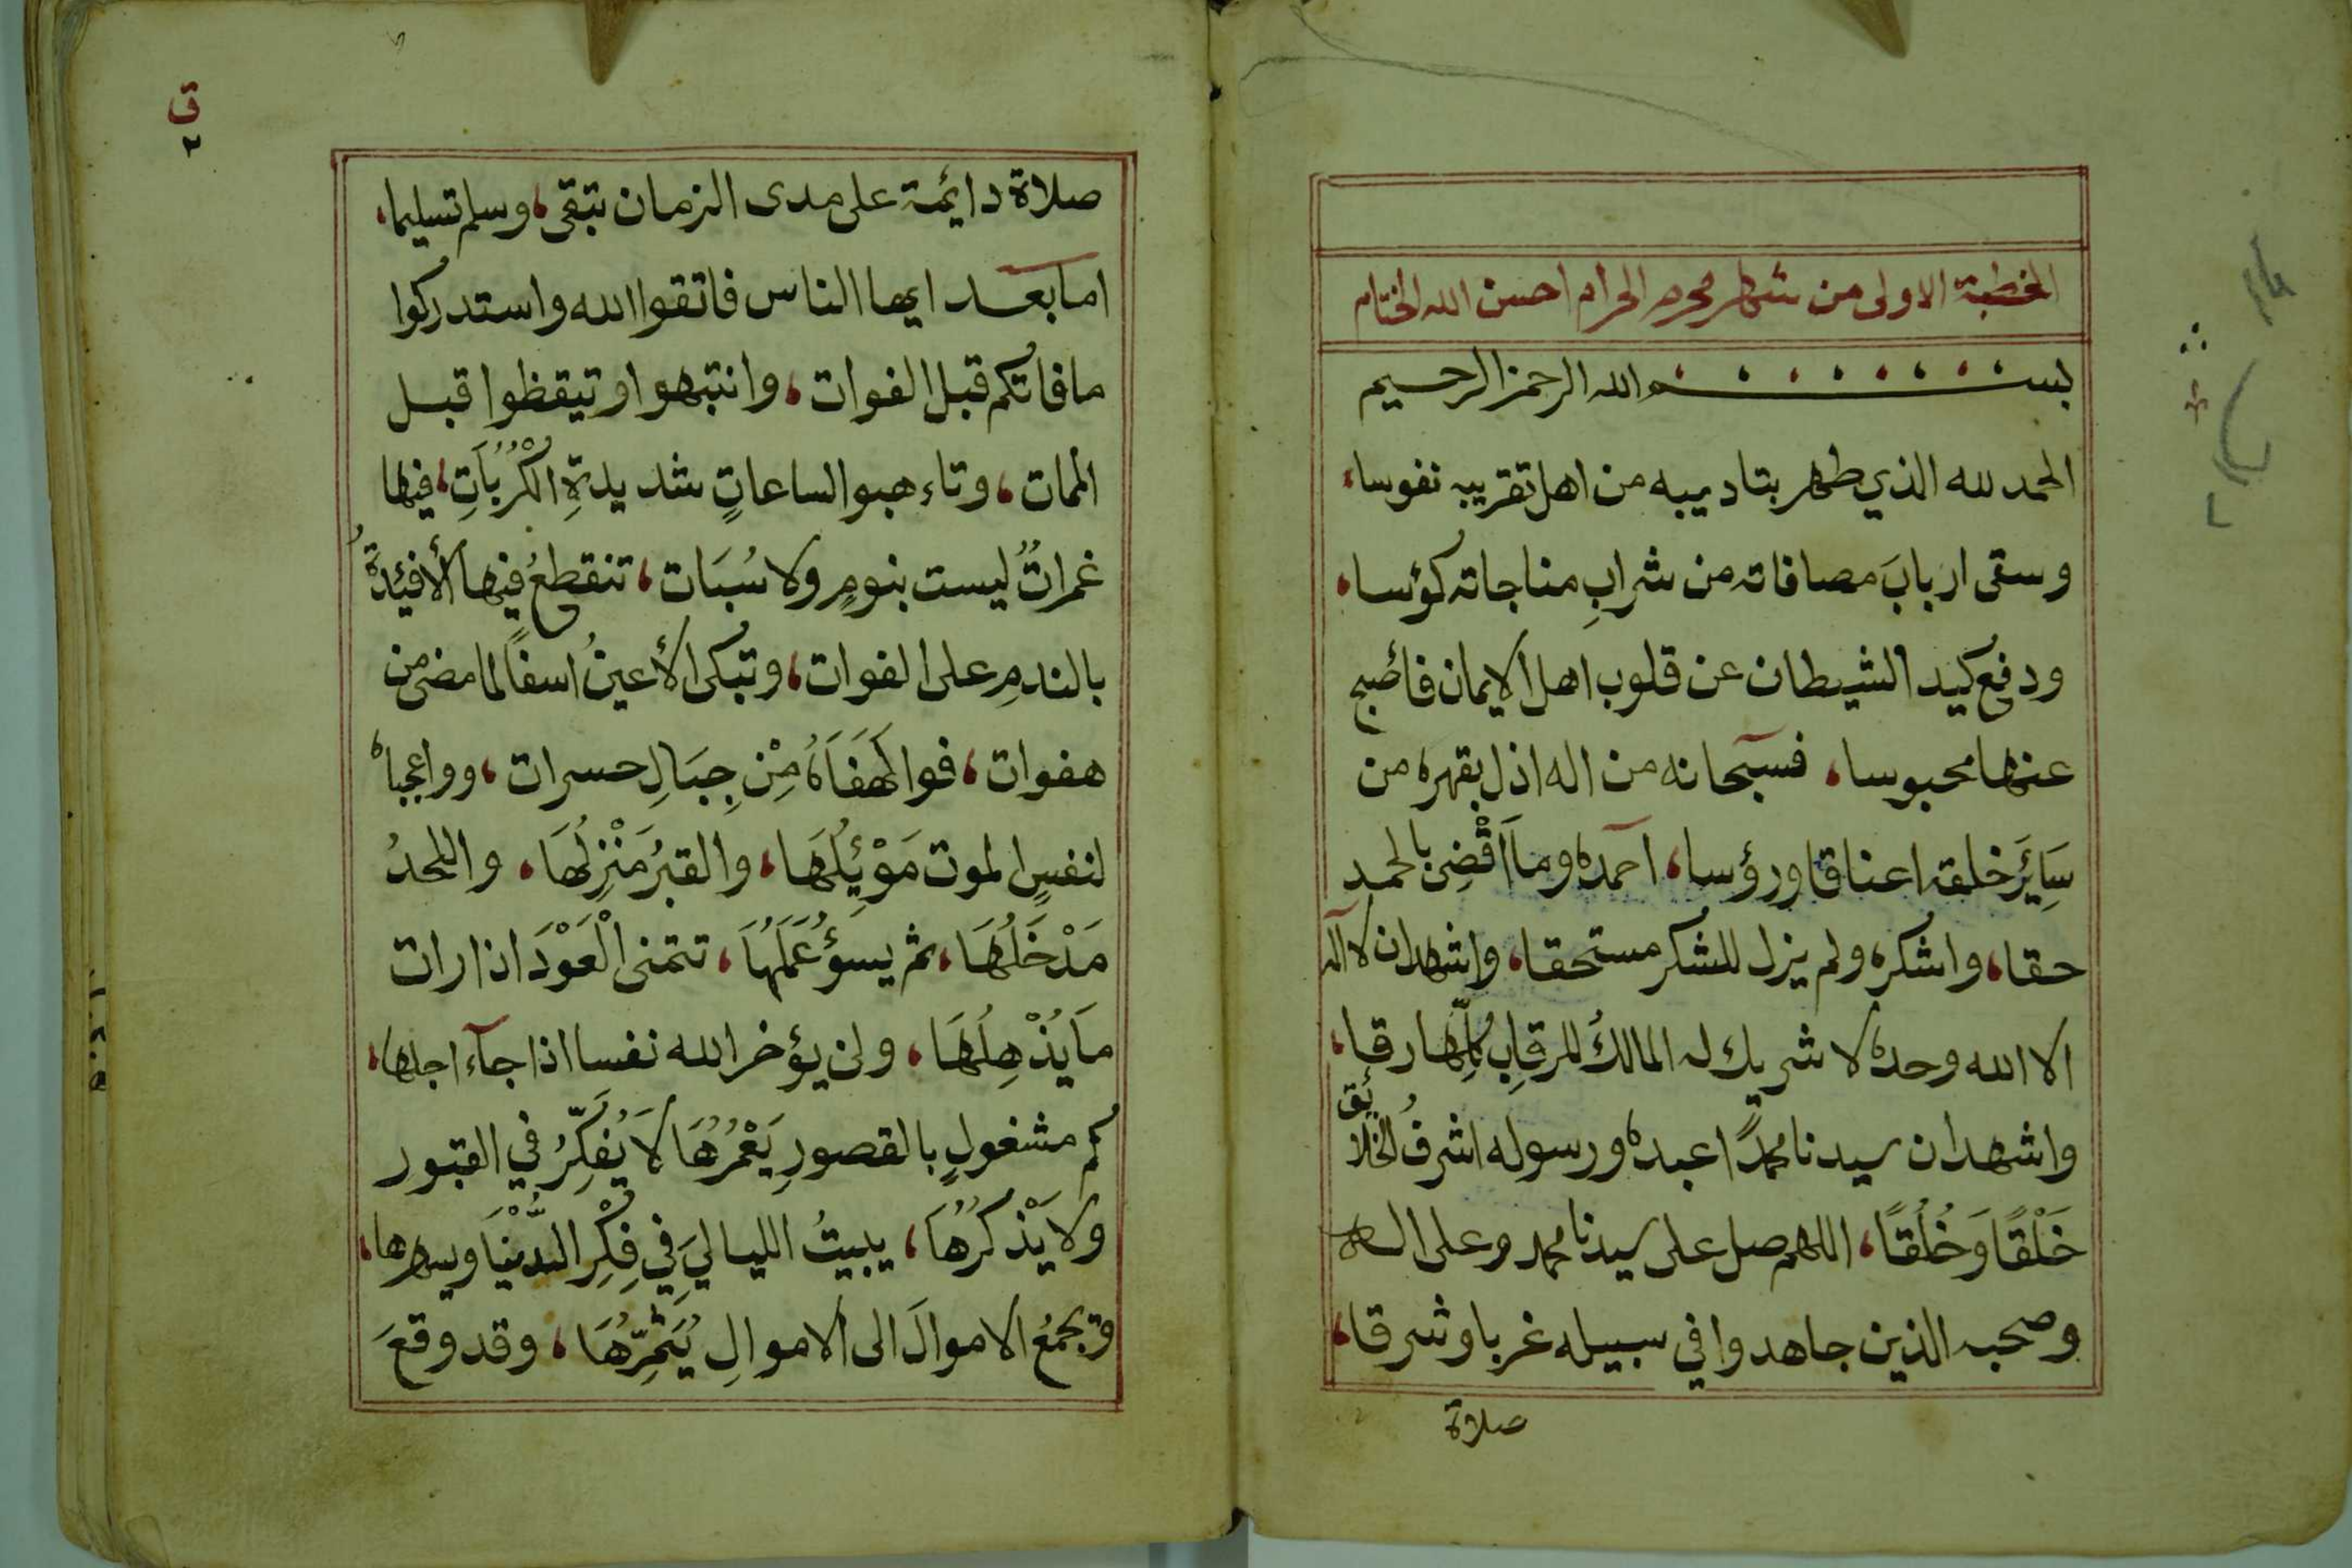 الخطبة الاولى من شهر محرم الحرام احسن الله الختام
بسم الله الرحمن الرحيم
الحمد لله الذي طهر بتاديبه من اهل تقريبه نفوسا،
وسقى اربابَ مصافاته من شرابِ مناجاته كؤسا،
ودفع كيد الشيطان عن قلوب اهل الايمان فاصبح
عنها محبوسا، فسبحانه من اله اذل بقهره من
سَايَرَ خلقه اعناقا ورؤسا، احمده وما اَقْضِى بالحمدِ
حقا، واشكره ولم يزل للشكر مستحقا، واشهد ان لا اله
الا الله وحده لا شريك له المالكُ للرقابِ كُلِّها رقا،
واشهد ان سيدنا محمدًا عبده ورسوله اشرفُ الخلائق
خَلْقًا وَخُلُقًا، اللهم صل على سيدنا محمد وعلى اله
وصحبه الذين جاهدوا في سبيله غربا وشرقا،
صلاة
ق
٢
صلاة دائمة على مدى الزمان تبقى، وسلم تسليما،
اما بعد ايها الناس فاتقوا الله واستدركوا
ما فاتكم قبل الفوات، وانتبهوا وتيقظوا قبل
الممات، وتاءهبوا لساعاتٍ شديدةِ الْكُرُبَاتِ، فيها
غمراتٌ ليست بنومٍ ولا سُبَات، تنقطعُ فيها الأفئِدَةُ
بالندمِ على الفوات، وتبكى الأعينُ اسفًا لما مضى من
هفوات، فوالَهَفَاهُ مِنْ جِبَالِ حسرات، وواعجباه
لنفسٍ الموت مَوْئِلُهَا، والقبرُ مَنْزِلُهَا، واللحدُ
مَدْخَلُهَا، ثم يسؤُ عَمَلُهَا، تتمنى الْعَوْدَ اذا رات
مَا يُذْهِلُهَا، ولن يؤخر الله نفسا اذا جآء اجلها،
كم مشغولٍ بالقصورِ يَعْمُرُهَا لَا يُفَكِّرُ في القبور
ولا يَذْكُرُهَا، يبيتُ الليالي في فِكْرِ الدُّنْيَا ويسهرها،
ويجمعُ الاموالَ الى الاموالِ يُثَمِّرُهَا، وقد وقعَ